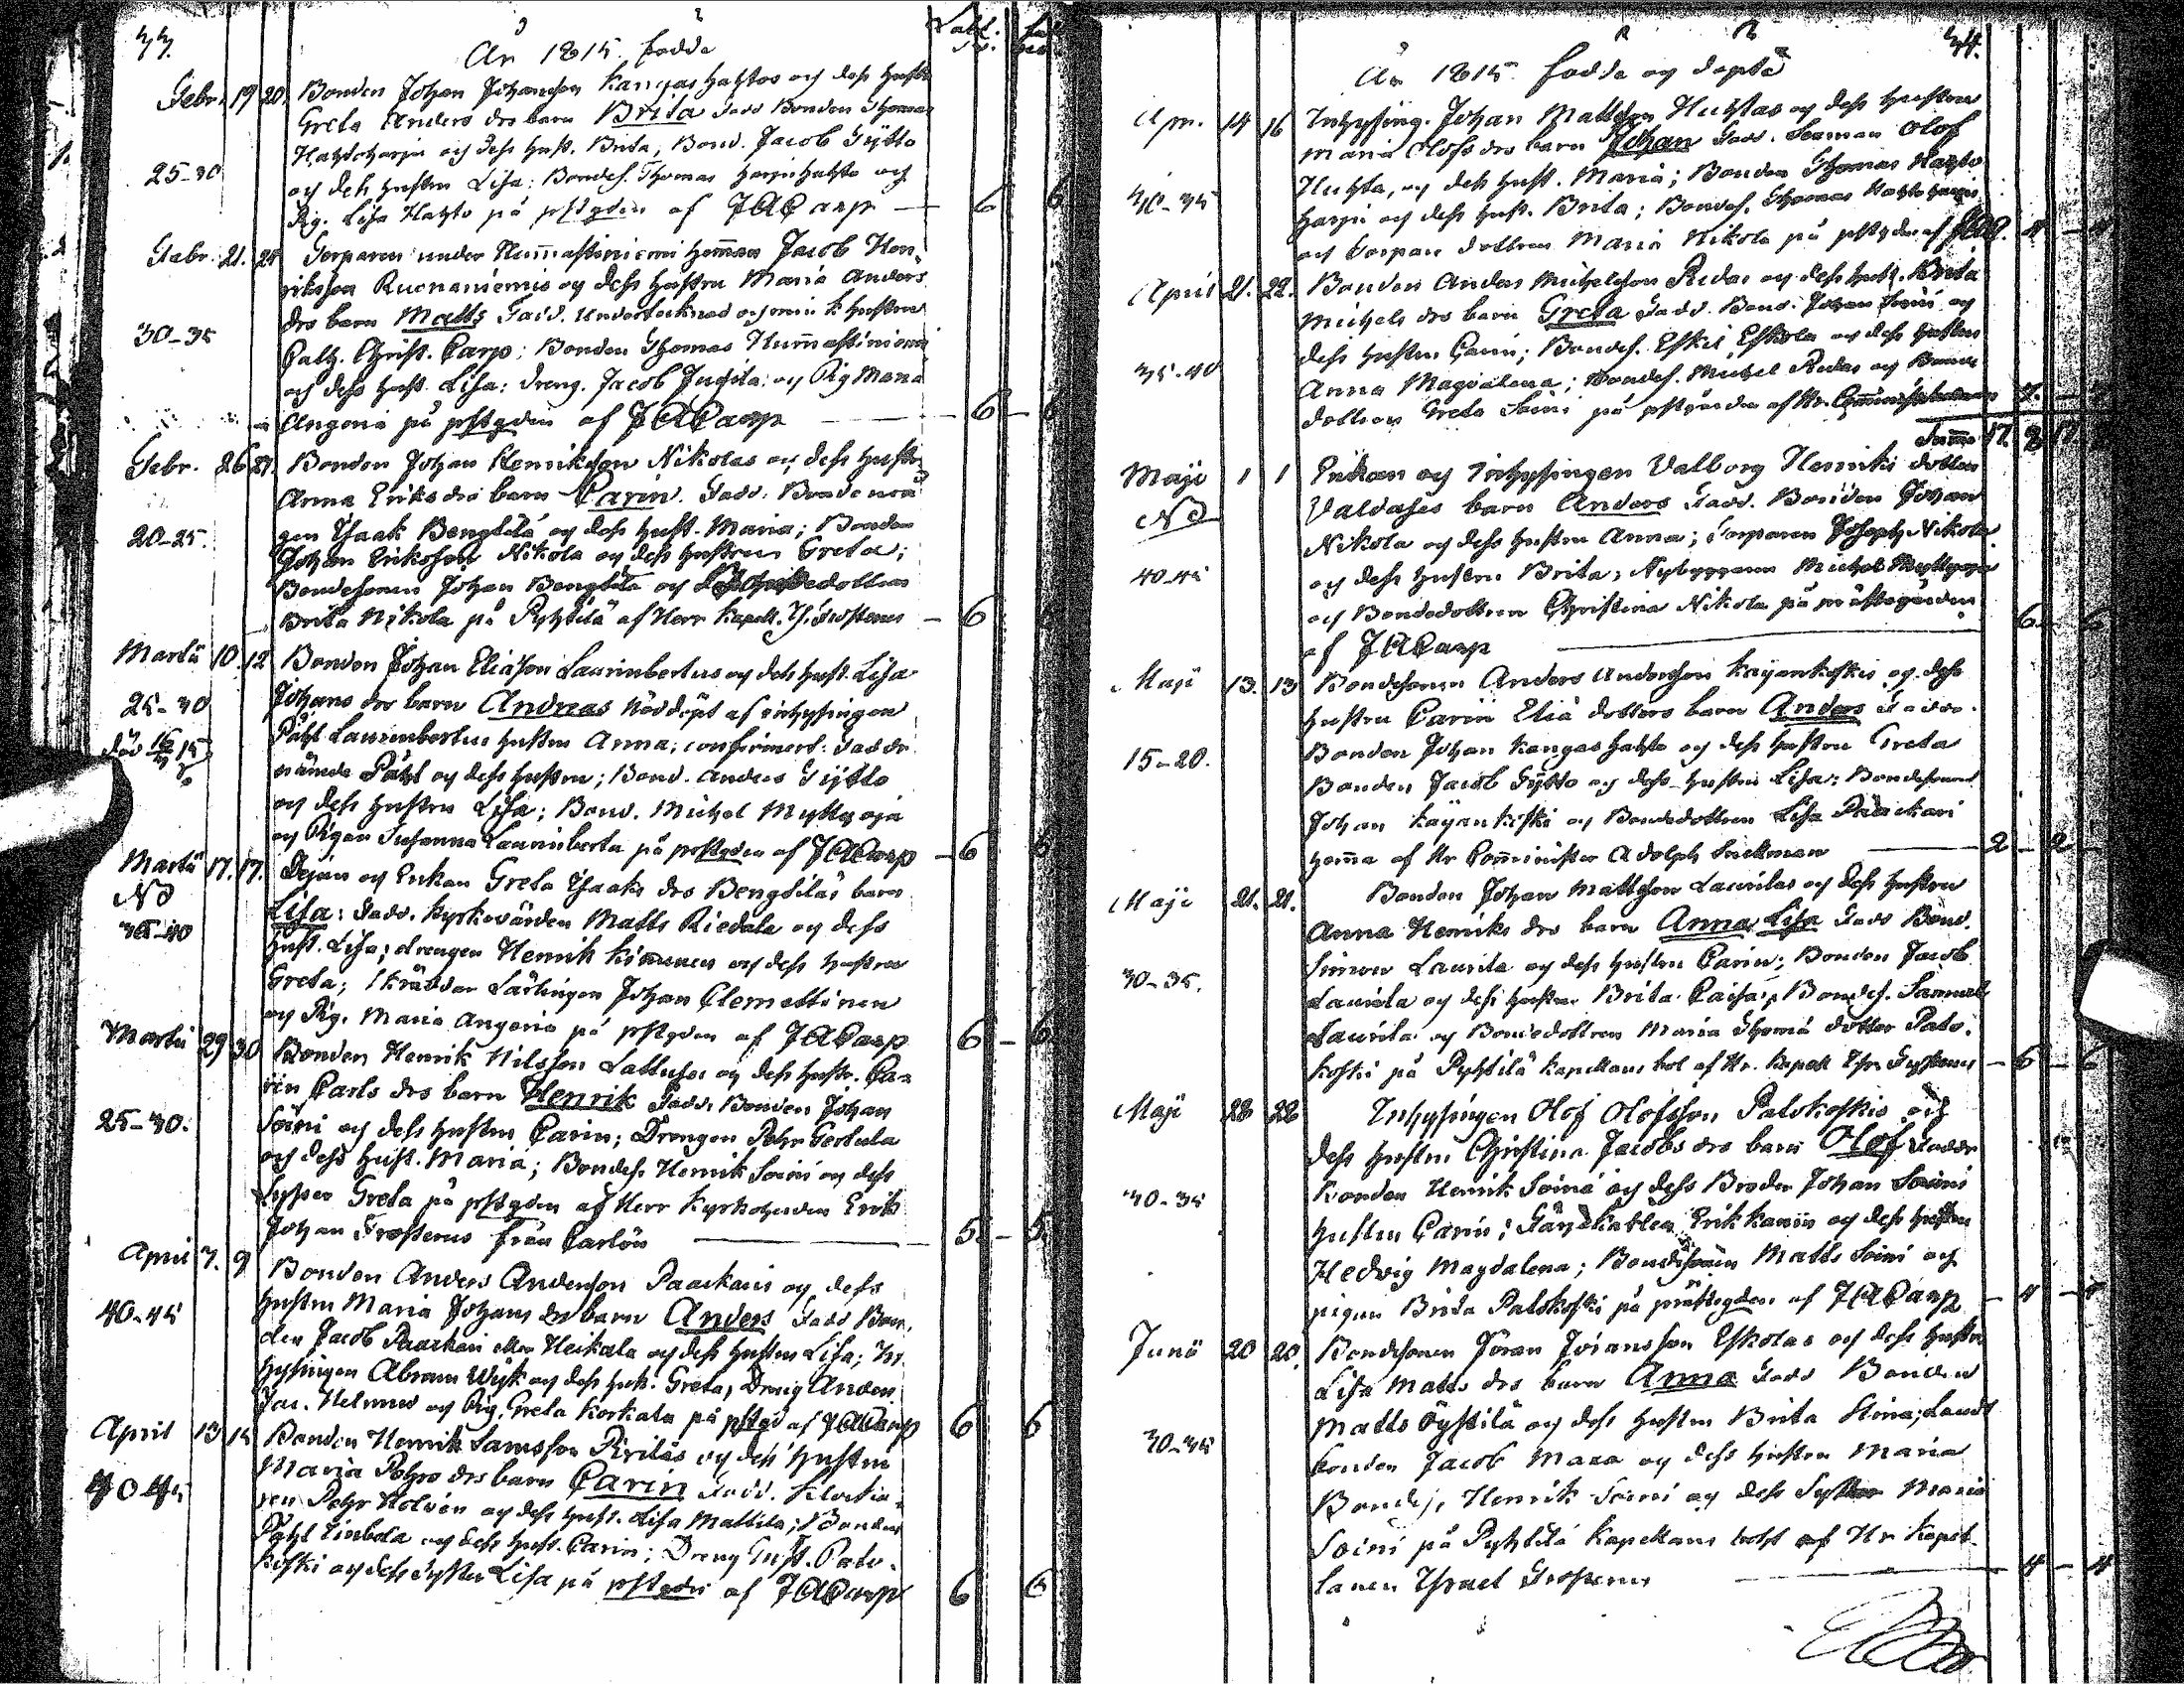 År 1815 födde
Febr. 19 20. Bonden Johan Johansson Kangashahtos och dess hustru
Greta Anders drs barn Brita Fadd Bonden Thomas
Hahtoharju och dess hust. Brita, Bond. Jacob Tytto
25-30 och dess hustru Lisa; Bondes. Thomas Harju Hahto och
Pig. Lisa Hahto på pstgden af JACarp 6 6
Febr. 21. 24 Torparen under Hemmän Jacob Hen-
riksson Ruonaniemis och dess hustru Maria Anders
drs barn Matts Fadd. undertecknad och min k. hustru
30-35 Cath. Christ. Carp; Bonden Thomas
och dess hust. Lisa; Dreng. Jacob Jugila; och Pig Maria
Angeria på pstgden af JACarp 6 6
Febr. 26 27. Bonden Johan Henriksson Nikolas och dess hustru
Anna Eriks drs barn Carin. Fadd: Bonde
gen Isaak Bengtilä och dess hust. Maria; Bonden
20-25. Johan Eriksson Nikola och dess hustru Greta;
Bondesonen Johan Bengtilä och Bondedottren
Brita Nikola på Pyhtilä af Herr Kapell. Is. Frosterus 6
Martii 10. 12 Bonden Johan Eliasson Laurinbertus och dess hust. Lisa
25-30 Johans drs barn Andreas Nöddöpt af inhysingen
död Påhl Laurinbertus hustru Anna; confirmert: Faddr
nämde Påhl och dess hustru; Bond. Anders Tytto
och dess hustru Lisa; Bond. Michel Myllyoja
och Pigan Susanna Laurinberta på prstgden af JACarp 6
Martii 17. 17. Dejan och Enkan Greta Isaaks drs Bengtiläs barn
Nd Lisa: Fadd. Kyrkovärden Matts Riedala och dess
hust. Lisa; drengen Henrik Kinnunen och dess hustru
Greta; Skräddar Lärlingen Johan Clemettinen
och Pig. Maria Angeria på pstgden af JACarp 6 6
Martii 29 30 Bonden Henrik Nilsson Lattusas och dess hustr. Ca-
rin Carls drs barn Henrik Fadd. Bonden Johan
25-30. Soini och dess hustru Carin; Drengen Pehr Gertula
och dess hust. Maria; Bondes. Henrik Soini och dess
Syster Greta på pstgden af Herr Kyrkoherden Erik
Johan Frosterus från Carlön 5 5
April 7. 9 Bonden Anders Andersson Paackaris och dess
hustru Maria Johans drs barn Anders Fadd Bon-
40-45 den Jacob Paackari eller Heikala och dess hustru Lisa; In-
hysingen Abram Wijk och dess hust. Greta, Dreng Anders
Jac. och Pig. Greta Korkala på pstgd af JACarp 6 6
April 13 14 Bonden Henrik Samsson Pirilas och dess hustru
Maria Pehrs drs barn Carin Fadd. Klocka-
40-45 ren Pehr Holven och dess hust. Lisa Mattila; Bonden
Påhl och dess hust. Carin; Dreng Palo-
koski och dess Syster Lisa på pstgdn af JACarp 6 6
År 1815 födde och döpte
34.
Apr. 14 16 Inhysing. Johan Mattsson Huhtas och dess hustru
Maria Olofs drs barn Johan Fadd. Seaman Olof
Huhta, och dess hust. Maria; Bonden Thomas Hahto
Harju och dess hust. Brita; Bondes. Thomas Hahto Harju
och Torpare dottren Maria Nikola på pstgden af JAC. 4 4
April 21. 22. Bonden Anders Michelsson Riedas och dess hust. Brita
Michels drs barn Greta Fadd. Bond. Johan Soini och
dess hustru Carin; Bondes. Eskil Eskola och dess hustru
35-40 Anna Magdalena; Bondes. Michel Riedas och Bonde
dottren Greta Soini på pstgården af Hr. 7.
Summa 17. 17
Maji 1 1 Enkan och Inhysingen Valborg Henriks dotter
Nd Valdases barn Anders Fadd. Bonden Johan
Nikola och dess hustru Anna; Torparen Joseph Nikola
40-45 och dess hustru Brita; Nybyggaren Michel Myllyoja
och Bondedottren Christina Nikola på prästegården
af JACarp 6 6
Maji 13. 13 Bondesonen Anders Andersson Käyänkoskis och dess
hustru Carin Elia dotters barn Anders Faddr.
15-20. Bonden Johan Kangashahto och dess hustru Greta
Bonden Jacob Tytto och dess hustru Lisa; Bondesonen
Johan Käyänkoski och Bondedottren Lisa Paackari
hemma af Hr Comminister Adolph Snellman 2 2
Maji 21. 21. Bonden Johan Mattsson Laurilas och dess hustru
Anna Henriks drs barn Anna Lisa Fadd Bond.
30-35. Simon Laurila och dess hustru Carin; Bonden Jacob
Laurila och dess hustru Brita Caisa; Bondes. Samuel
Laurila och Bondedottren Maria Thomä dotter Palo-
koski på Pyhtilä Kapellans bol af Hr. Kapell. Isr. Frosterus 6 6
Maji 28 28 Inhysingen Olof Olofsson Palokoskis och
dess hustru Christina Jacobs drs barn Olof Faddr
30-35 Bonden Henrik Soini och dess Broder Johan Soinis
hustru Carin; Erik och dess hustru
Hedvig Magdalena; Bondesonen Matts Soini och
pigan Brita Palokoski på prästegden af JACarp 4 4
Junii 20 20. Bondesonen Jöran Jöransson Eskolas och dess hustru
Lisa Matts drs barn Anna Fadd Bonden
30-35 Matts Öystilä och dess hustru Brita Stina; Lands
bonden Jacob Mara och dess hustru Maria
Bondes. Henrik Soini och dess Syster Maria
Soini på Pyhtilä Kapellans bohl af Hr Kapel-
lanen Israel Frosterus 4 4